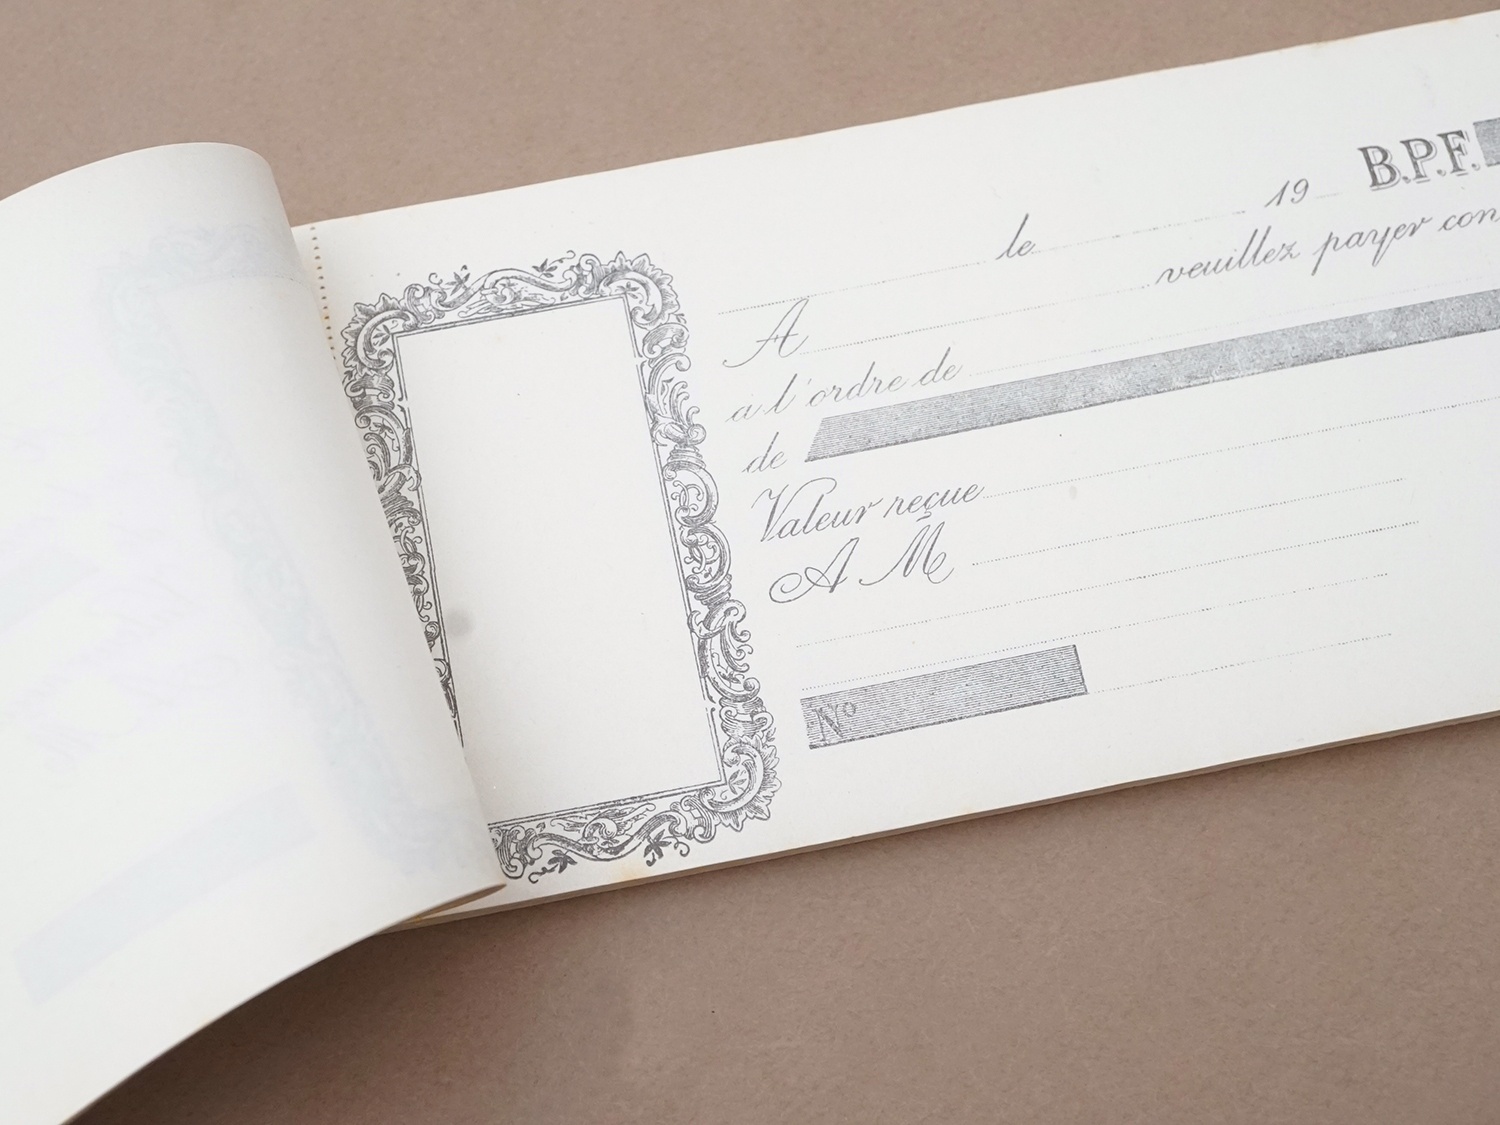 le 19 B.P.F.
A veuillez payer con
a l'ordre de
de
Valeur reçue
A M
Nº